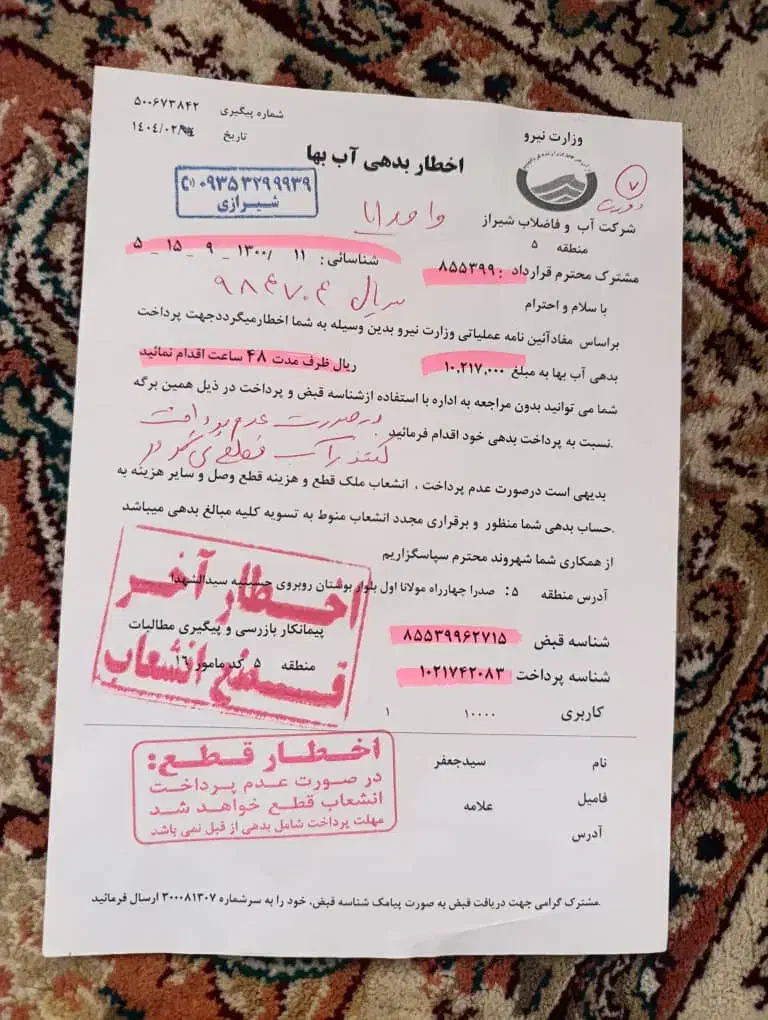 وزارت نیرو
شماره پیگیری ۵۰۰۶۷۳۸۴۲
تاریخ ۱۴۰۴/۰۲/
اخطار بدهی آب بها
۷
۰۹۳۵۳۲۹۹۹۳۹
شیرازی
شرکت آب و فاضلاب شیراز
منطقه ۵
مشترک محترم قرارداد : ۸۵۵۳۹۹
شناسائی : ۱۱ /۱۳۰۰ _ ۹ _ ۱۵ _ ۵
با سلام و احترام
سریال ۹۸۴۷۰۴
براساس مفادآئین نامه عملیاتی وزارت نیرو بدین وسیله به شما اخطارمیگرددجهت پرداخت
بدهی آب بها به مبلغ ۱۰,۲۱۷,۰۰۰ ریال ظرف مدت ۴۸ ساعت اقدام نمائید
شما می توانید بدون مراجعه به اداره با استفاده ازشناسه قبض و پرداخت در ذیل همین برگه
.نسبت به پرداخت بدهی خود اقدام فرمائید
در صورت عدم پرداخت
کنتور آب قطع می گردد
بدیهی است درصورت عدم پرداخت , انشعاب ملک قطع و هزینه قطع وصل و سایر هزینه به
.حساب بدهی شما منظور و برقراری مجدد انشعاب منوط به تسویه کلیه مبالغ بدهی میباشد
از همکاری شما شهروند محترم سپاسگزاریم
آدرس منطقه ۵ : صدرا چهارراه مولانا اول بلوار بوستان روبروی حسینیه سیدالشهدا
اخطار آخر
قطع انشعاب
پیمانکار بازرسی و پیگیری مطالبات
منطقه ۵ کد مامور ۱۶
شناسه قبض ۸۵۵۳۹۹۶۲۷۱۵
شناسه پرداخت ۱۰۲۱۷۴۲۰۸۳
کاربری ۱۰۰۰۰ ۱
نام سیدجعفر
فامیل علامه
آدرس
اخطار قطع:
در صورت عدم پرداخت
انشعاب قطع خواهد شد
مهلت پرداخت شامل بدهی از قبل نمی باشد
.مشترک گرامی جهت دریافت قبض به صورت پیامک شناسه قبض، خود را به سرشماره ۳۰۰۰۸۱۳۰۷ ارسال فرمائید